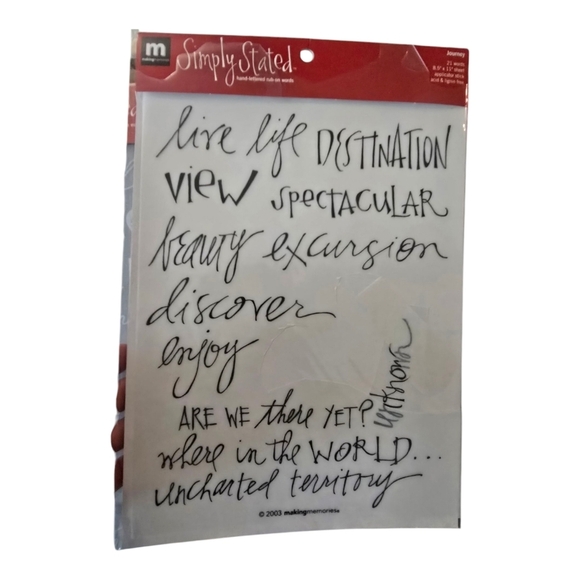 m
makingmemories
Simply Stated
hand lettered rub-on words
Journey
21 words
8.5" x 11" sheet
applicator stick
acid & lignin free
live life DESTINATION
VIEW SPECTACULAR
BEAUTY excursion
discover
enjoy
unknown
ARE WE there YET?
where in the WORLD...
uncharted territory
© 2003 makingmemories